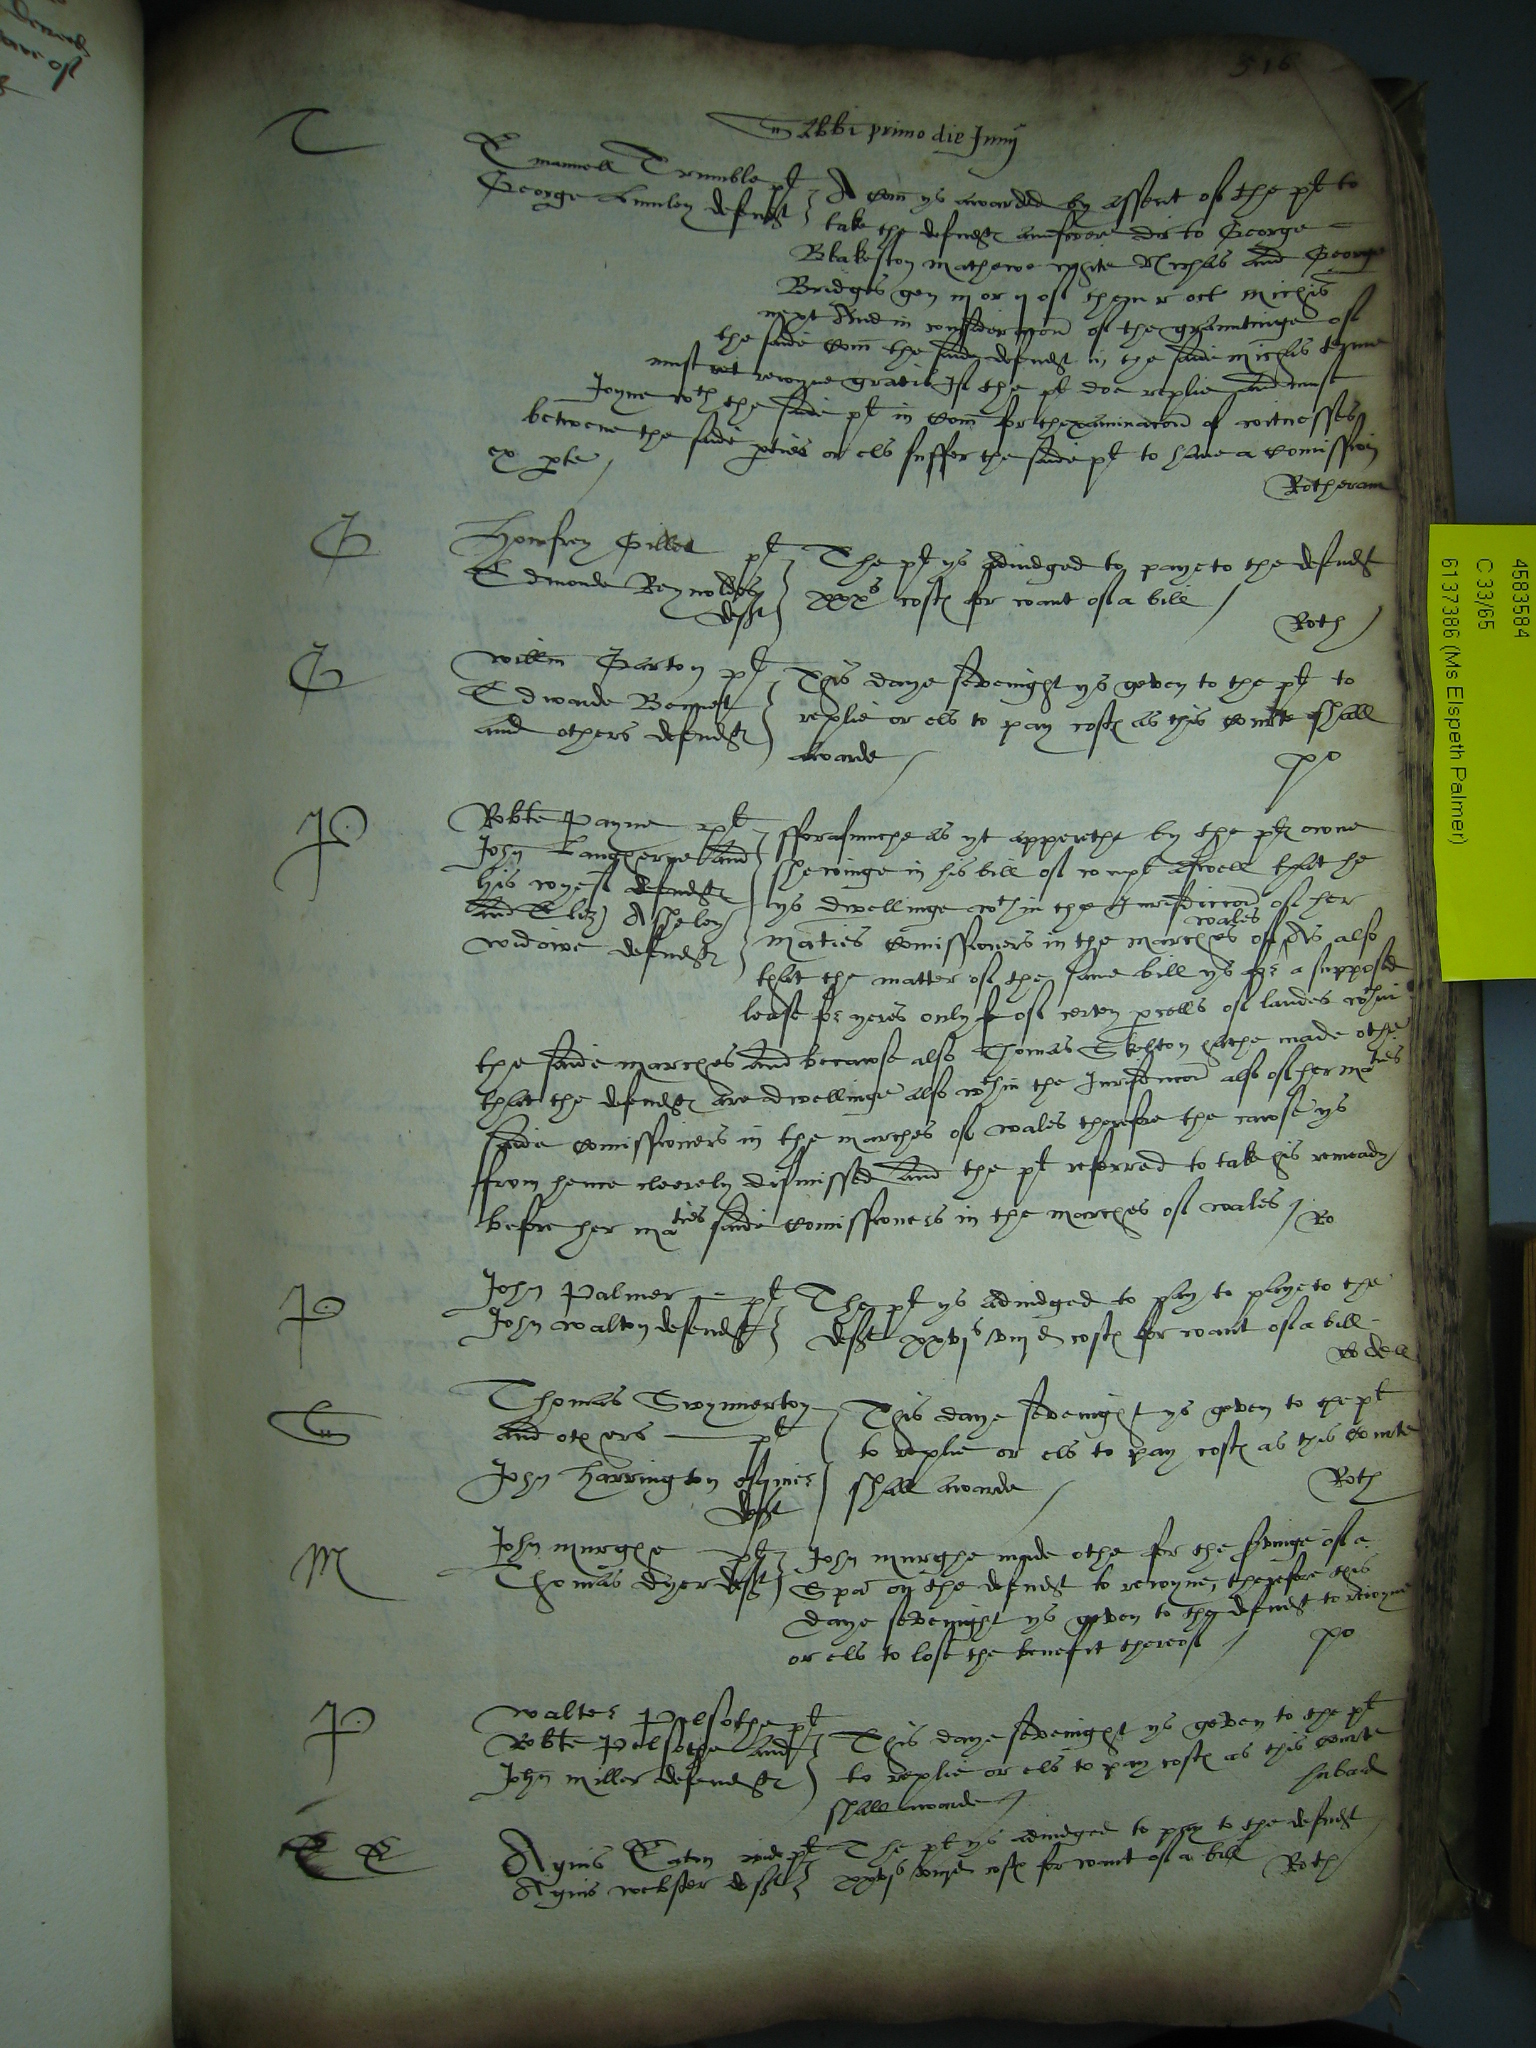 516
Sabbi primo die Junij
T
Emanuell Trumble plt
George Lumley defendt
A Com ys awarded by assent of the plt to
take the defendtes answere dir to George
Blakeston Mathewe White Nichas and George
Bridges gen iij or ij of them r oct Michis
next And in consideracon of the grauntinge of
the saide Com the saide defendt in the saide Michis terme
must rejoyne gratis If the plt doe replie and must
Joyne wth the saide plt in Com for thexaminacon of witnesses
betwene the saide pties or els suffer the saide plt to have a Comission
ex pte
Rotheram
G
Humfrey Gillet plt
Edmonde Reynoldes
deft
The plt ys adiudged to paye to the defendt
xxxs costes for want of a bill
Roth
G
Willm Garton plt
Edwarde Bennet
and others defendtes
This daye sevenight ys geven to the plt to
replie or els to pay costes as this Courte shall
awarde
po
P
Robte Payne plt
John Langherne and
his wyef defendtes
and Eliz Assheley
widowe defendtes
fforasmuche as yt apperethe by the pltes owne
shewinge in his bill of complt aswell that he
ys dwellinge wthin the Jurisdiccon of her
maties Comissioners in the marches of wales as also
that the matter of the same bill ys for a supposed
lease for yeres only of certen pcells of landes wthin
the saide marches And becawse also Thomas Skelton hathe made othe
that the defendtes are dwellinge also wthin the Jurisdiccon also of her maties
saide Comissioners in the marches of wales therefore the cawse ys
from hence cleerely dismissed And the plt referred to take his remeady
before her maties saide Comissioners in the marches of wales / Ro
P
John Palmer plt
John Walton defendt
The plt ys adiudged to pay to paye to the
deft xxvjs viijd costes for want of a bill
Cordell
S
Thomas Swynnerton
and others plt
John Harrington esquier
deft
This daye sevenight ys geven to the plt
to replie or els to pay costes as this Courte
shall awarde
Roth
M
John Murghe plt
Thomas Dyer deft
John Murghe made othe for the servinge of a
Spa on the defendt to rejoyne, therefore this
daye sevenight ys geven to the defendt to rejoyne
or els to lose the benefit thereof
po
P
Walter Pelsothe plt
Robte Pelsothe and
John Miller defendtes
This daye sevenight ys geven to the plt
to replie or els to pay costes as this Courte
shall awarde
hubard
E E
Agnis Eaton wid plt
Agnis Webster deft
The plt ys adiudged to pay to the defendt
xxvjs viijd costes for want of a bill Roth
4583584
C 33/65
6137386 (Ms Elspeth Palmer)